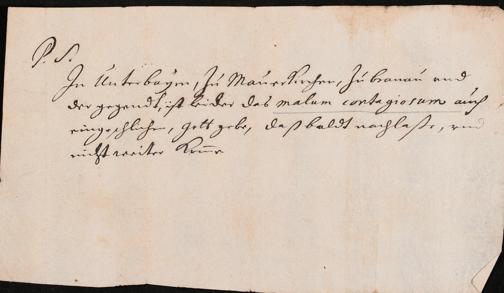 P. S.
In Unterbayrn, zu Maurkirchen, zu branau und
der gegendt, ist leider das malum contagiosum auch
eingeschlichen, Gott gebe, daß baldt nachlaße, und
nicht weiter komme